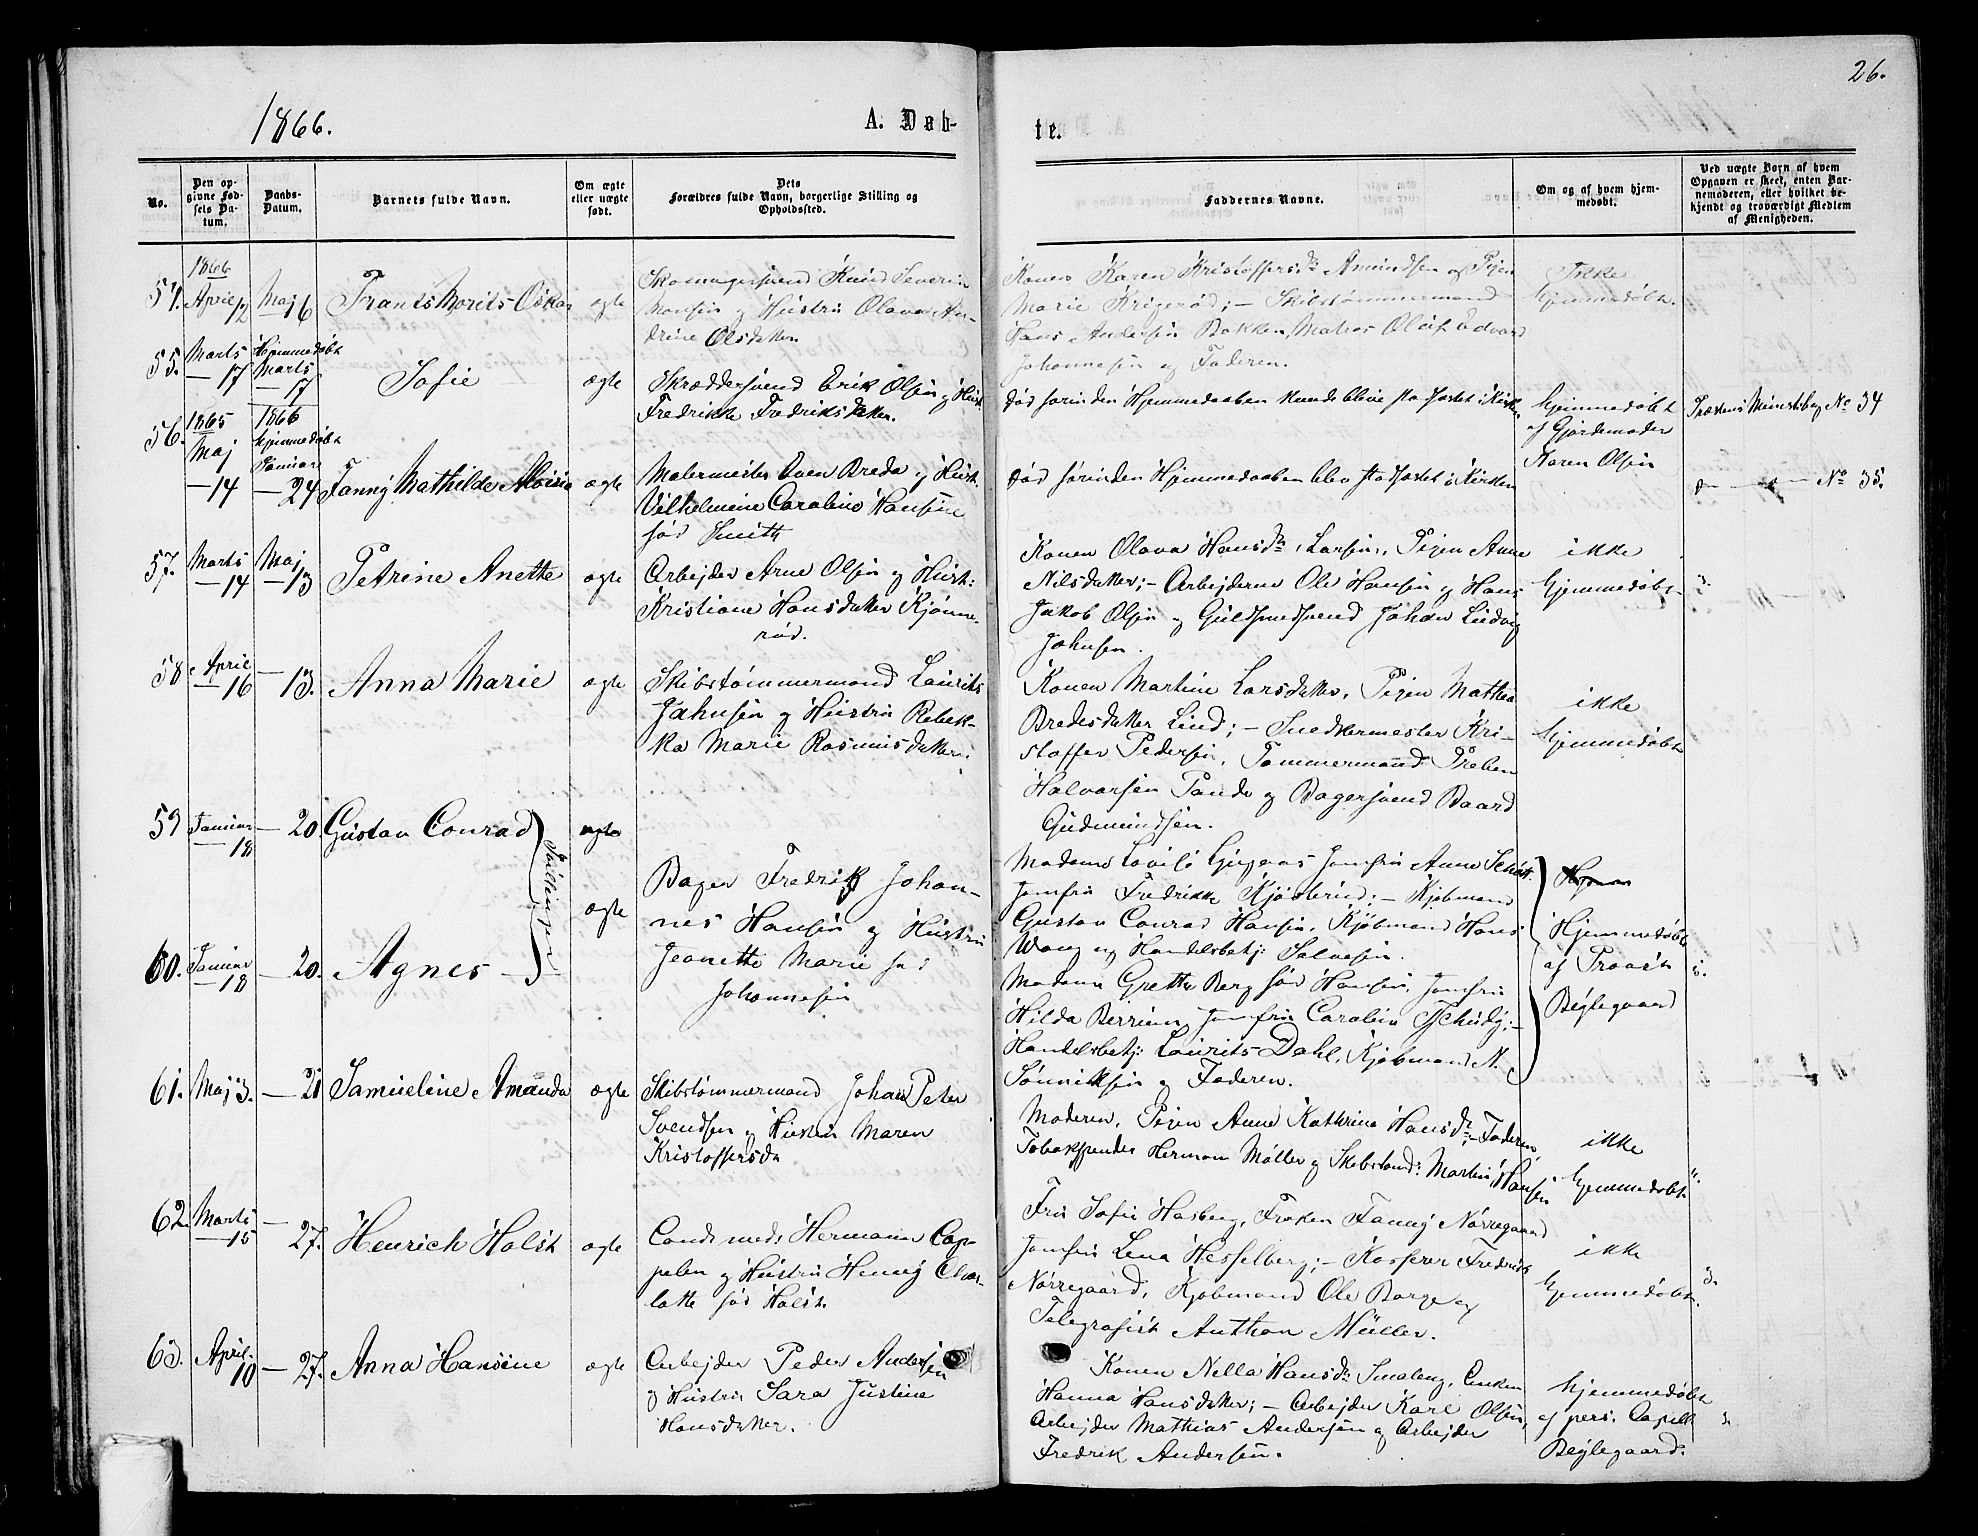 26.
1866.
A. Døb-
te.
No.
Den op-
givne Fød-
sels Da-
tum.
Daabs-
Datum.
Barnets fulde Navn.
Om ægte
eller uægte
født.
Dets
Forældres fulde Navn, borgerlige Stilling og
Opholdssted.
Faddernes Navne.
Om og af hvem hjem-
medøbt.
Ved uægte Børn af hvem
Opgaven er skeet, enten Bar-
nemoderen, eller hvilket be-
kjendt og troværdigt Medlem
af Menigheden.
54.
1866
April 12
Maj 6
Frants Morits Oskar
ægte
Skomagersvend Knud Severin
Hansen og Hustru Olava An-
drine Olsdatter
Konen Karen Kristoffersdr Amundsen og Pigen
Marie Krigerød; - Skibstømmermand
Hans Andersen Bakken, Matros Oluf Edvard
Johannesen og Faderen.
Ikke
hjemmedøbt.
55.
Marts
— 17
Hjemmedøbt
Marts
— 17
Sofie
ægte
Skræddersvend Erik Olsen og Hust
Fredrikke Fredriksdatter.
død førinden Hjemmedaaben kunde blive stadfæstet i Kirken
hjemmedøbt
af Gjordemoder
Karen Olsen
Præstens Ministbog No 34
56.
1865
Maj
— 14
1866
hjemmedøbt
Januar
— 24
Fanny Mathilde Aloisia
ægte
Malermester Even Breda og Hust.
Vilhelmine Caroline Hansine
fød Smith
død førinden Hjemmedaaben blev stadfæstet i Kirken
No 35.
57.
Marts
— 14
Maj
— 13
Petrine Anette
ægte
Arbejder Arne Olsen og Hust:
Kristiane Hansdatter Kjønne-
rød.
Konen Olava Hansdr Larsen, Pigen Anne
Nilsdatter; - Arbejderne Ole Hansen og Hans
Jakob Olsen og Guldsmedsvend Johan Ludvig
Johnsen.
ikke
hjemmedøbt
58
April
— 16
— 13.
Anna Marie
ægte
Skibstømmermand Laurits
Johnsen og Hustru Rebek-
ka Marie Rasmusdatter.
Konen Martine Larsdatter, Pigen Mathea
Bredesdatter Lind; - Snedkermester Kri-
stoffer Pedersen, Tømmermand Preben
Halvorsen Pande og Bagersvend Baard
Gudmundsen.
ikke
hjemmedøbt
59
Januar
— 18
— 20.
Gustav Conrad
Tvillinger
ægte
Bager Fredrik Johan-
nes Hansen og Hustru
Jeanette Marie fød
Johannesen
Madame Lovise, Jomfru Anne
Jomfru Fredrikke; - Kjøbmand
Gustav Conrad Hansen, Kjøbmand Hans
Wang og Handelsbetj: Salvesen.
Hjemmedøbt
af Provst
Bejlegaard
60.
Januar
— 18
— 20.
Agnes
ægte
Madame Grethe Berg fød Hansen, Jomfru
Hilda, Jomfru Caroline Tschudy; -
Handelsbetj: Laurits Dahl, Kjøbmand N.
Sønniksen og Faderen.
61.
Maj 3.
— 21
Samueline Amanda
ægte
Skibstømmermand Johan Peter
Svendsen og Hustru Maren
Kristoffersda
Moderen, Pigen Anne Kathrine Hansdr; - Faderen
Tobaksspinder Herman Møller og Skibstømd: Martin Hansen
ikke
hjemmedøbt
62.
Marts
— 15
— 27.
Henrich Holst
ægte
Cand: med: Hermann Cap-
pelen og Hustru Henny Char-
lotte fød Holst.
Fru Sofie Hasberg, Frøken Fanny Nørregaard
Jomfru Lena Hesselberg; - Kasserer Fredrik
Nørregaard, Kjøbmand Ole Borge og
Telegrafist Anthon Müller.
ikke
hjemmedøbt.
63.
April.
10
— 27.
Anna Hansine
ægte
Arbejder Peder Andersen
og Hustru Sara Justine
Hansdatter.
Konen Nella Hansdr Smaberg, Enken
Hanna Hansdatter; - Arbejder Karl Olsen,
Arbejder Mathias Andersen og Arbejder
Fredrik Andersen.
hjemmedøbt
af pers. Capell:
Bejlegaard.